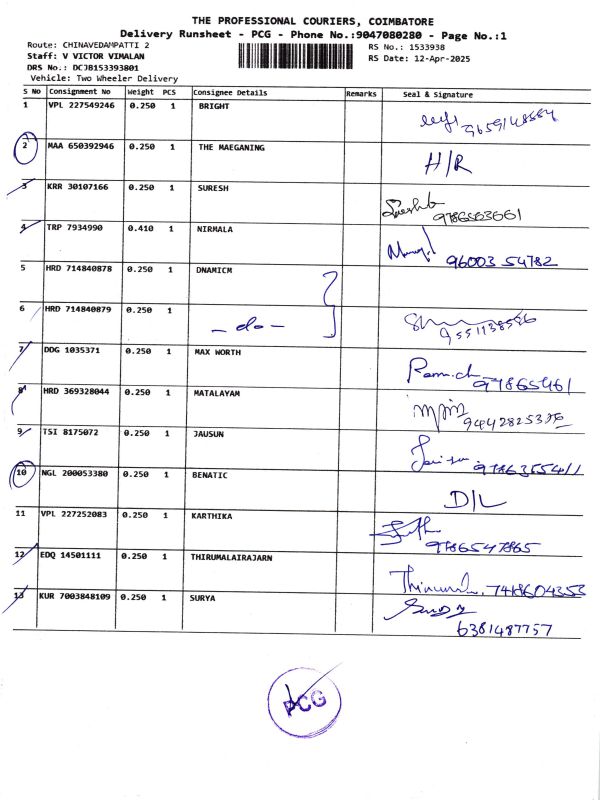 THE PROFESSIONAL COURIERS, COIMBATORE
Delivery Runsheet - PCG - Phone No.:9047080280 - Page No.:1
Route: CHINAVEDAMPATTI 2
RS No.: 1533938
Staff: V VICTOR VIMALAN
RS Date: 12-Apr-2025
DRS No.: DCJB153393801
Vehicle: Two Wheeler Delivery
S No Consignment No Weight PCS Consignee Details Remarks Seal & Signature
1 VPL 227549246 0.250 1 BRIGHT
2 MAA 650392946 0.250 1 THE MAEGANING H/R
3 KRR 30107166 0.250 1 SURESH Suresh
4 TRP 7934990 0.410 1 NIRMALA 96003 54782
5 HRD 714840878 0.250 1 DNAMICM
6 HRD 714840879 0.250 1 - do -
7 DDG 1035371 0.250 1 MAX WORTH
8 HRD 369328044 0.250 1 MATALAYAM
9 TSI 8175072 0.250 1 JAUSUN
10 NGL 200053380 0.250 1 BENATIC D/L
11 VPL 227252083 0.250 1 KARTHIKA 9786547865
12 EDQ 14501111 0.250 1 THIRUMALAIRAJARN 7418604353
13 KUR 7003848109 0.250 1 SURYA 6381487757
PCG